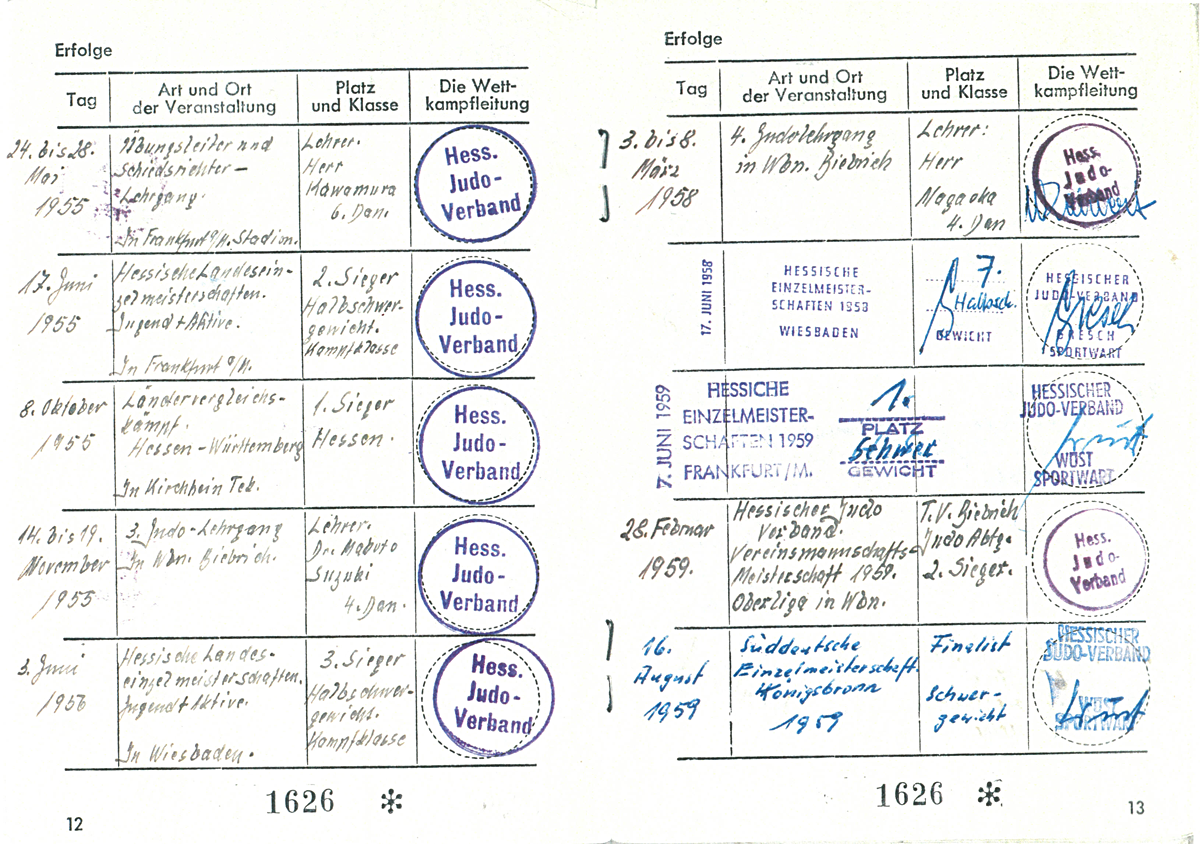 Erfolge
Tag
Art und Ort
der Veranstaltung
Platz
und Klasse
Die Wett-
kampfleitung
24. bis 28.
Mai
1955
Übungsleiter und
Schiedsrichter-
Lehrgang.
In Frankfurt a/M. Stadion.
Lehrer.
Herr
Kawamura
6. Dan.
Hess.
Judo-
Verband
17. Juni
1955
Hessische Landesein-
zelmeisterschaften.
Jugend + Aktive.
In Frankfurt a/M.
2. Sieger
Halbschwer-
gewicht.
Kampfklasse
Hess.
Judo-
Verband
8. Oktober
1955
Ländervergleichs-
kampf.
Hessen - Württemberg
In Kirchhein Tek.
1. Sieger
Hessen.
Hess.
Judo-
Verband
14. bis 19.
November
1955
3. Judo-Lehrgang
In Wbn. Biebrich.
Lehrer.
Dr. Mabuto
Suzuki
4. Dan.
Hess.
Judo-
Verband
3. Juni
1956
Hessische Landes-
einzelmeisterschaften.
Jugend + Aktive.
In Wiesbaden.
3. Sieger
Halbschwer-
gewicht.
Kampfklasse
Hess.
Judo-
Verband
1626 *
12
Erfolge
Tag
Art und Ort
der Veranstaltung
Platz
und Klasse
Die Wett-
kampfleitung
3. bis 8.
März
1958
4. Judolehrgang
in Wbn. Biebrich
Lehrer:
Herr
Nagaoka
4. Dan
Hess.
Judo-
Verband
17. JUNI 1958
HESSISCHE
EINZELMEISTER-
SCHAFTEN 1958
WIESBADEN
7.
Halbsch.
GEWICHT
HESSISCHER
JUDO-VERBAND
Gresch
GRESCH
SPORTWART
7. JUNI 1959
HESSICHE
EINZELMEISTER-
SCHAFTEN 1959
FRANKFURT/M.
1.
PLATZ
Schwer
GEWICHT
HESSISCHER
JUDO-VERBAND
Wüst
WÜST
SPORTWART
28. Februar
1959.
Hessischer Judo
Verband.
Vereinsmannschafts-
Meisterschaft 1959.
Oberliga in Wbn.
T.V. Biebrich
Judo Abtg.
2. Sieger.
Hess.
Judo-
Verband
16.
August
1959
Süddeutsche
Einzelmeisterschaft.
Königsbronn
1959
Finalist
Schwer-
gewicht
HESSISCHER
JUDO-VERBAND
Wüst
WÜST
SPORTWART
1626 *
13